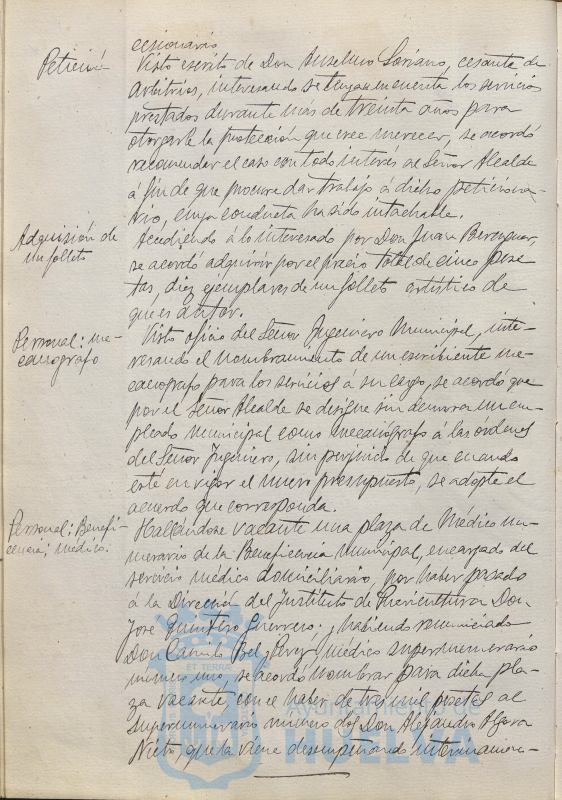 cesionario
Petición
Visto escrito de Don Anselmo Soriano, cesante de
Arbitrios, interesando se tengan en cuenta los servicios
prestados durante más de treinta años para
otorgarle la protección que cree merecer, se acordó
recomendar el caso con todo interés al Señor Alcalde
á fin de que procure dar trabajo á dicho peticiona-
rio, cuya conducta ha sido intachable.
Adquisión de
un folleto
Accediendo á lo interesado por Don Juan Berenguer,
se acordó adquirir por el precio total de cinco pese-
tas, diez ejemplares de un folleto artístico de
que es autor.
Personal: me-
canografo
Visto oficio del Señor Ingeniero Municipal, inte-
resando el nombramiento de un escribiente me-
canografo para los servicios á su cargo, se acordó que
por el Señor Alcalde se designe sin demora un em-
pleado municipal como mecanógrafo á las órdenes
del Señor Ingeniero, sin perjuicio de que cuando
esté en vigor el nuevo presupuesto, se adopte el
acuerdo que corresponda.
Personal: Benefi-
cencia; médico.
Hallándose vacante una plaza de Médico nu-
merario de la Beneficencia municipal, encargado del
servicio médico domiciliario, por haber pasado
á la Dirección del Instituto de Puericultura Don
José Quintero Guerrero; y habiendo renunciado
Don Camilo Bel y Perez médico supernumerario
número uno, se acordó nombrar para dicha pla-
za vacante con el haber de tres mil pesetas al
supernumerario número dos Don Alejandro Algora
Nieto, que la viene desempeñando interinamen-
ET TERRA
Ayuntamiento de
HUELVA